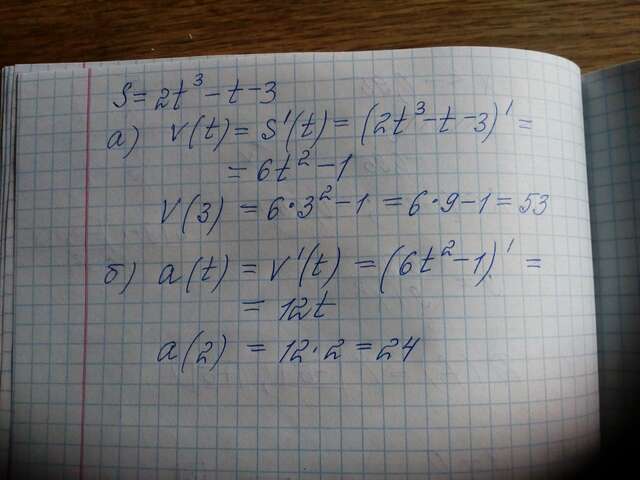 S = 2t³ - t - 3
а) v(t) = S'(t) = (2t³ - t - 3)' =
= 6t² - 1
V(3) = 6·3² - 1 = 6·9 - 1 = 53
б) a(t) = v'(t) = (6t² - 1)' =
= 12t
a(2) = 12·2 = 24